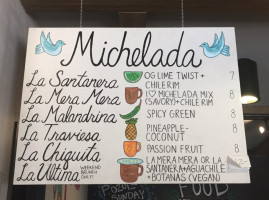 Michelada
La Santanera OG LIME TWIST + CHILE RIM 7
La Mera Mera I ♡ MICHELADA MIX (SAVORY) + CHILE RIM 8
La Malandrina SPICY GREEN 8
La Traviesa PINEAPPLE-COCONUT 8
La Chiquita PASSION FRUIT 8
La Ultima WEEKEND BRUNCH ONLY! LA MERA MERA OR LA SANTANERA + AGUACHILE + BOTANAS (VEGAN)
POZOL
SUNDAY
FOOD